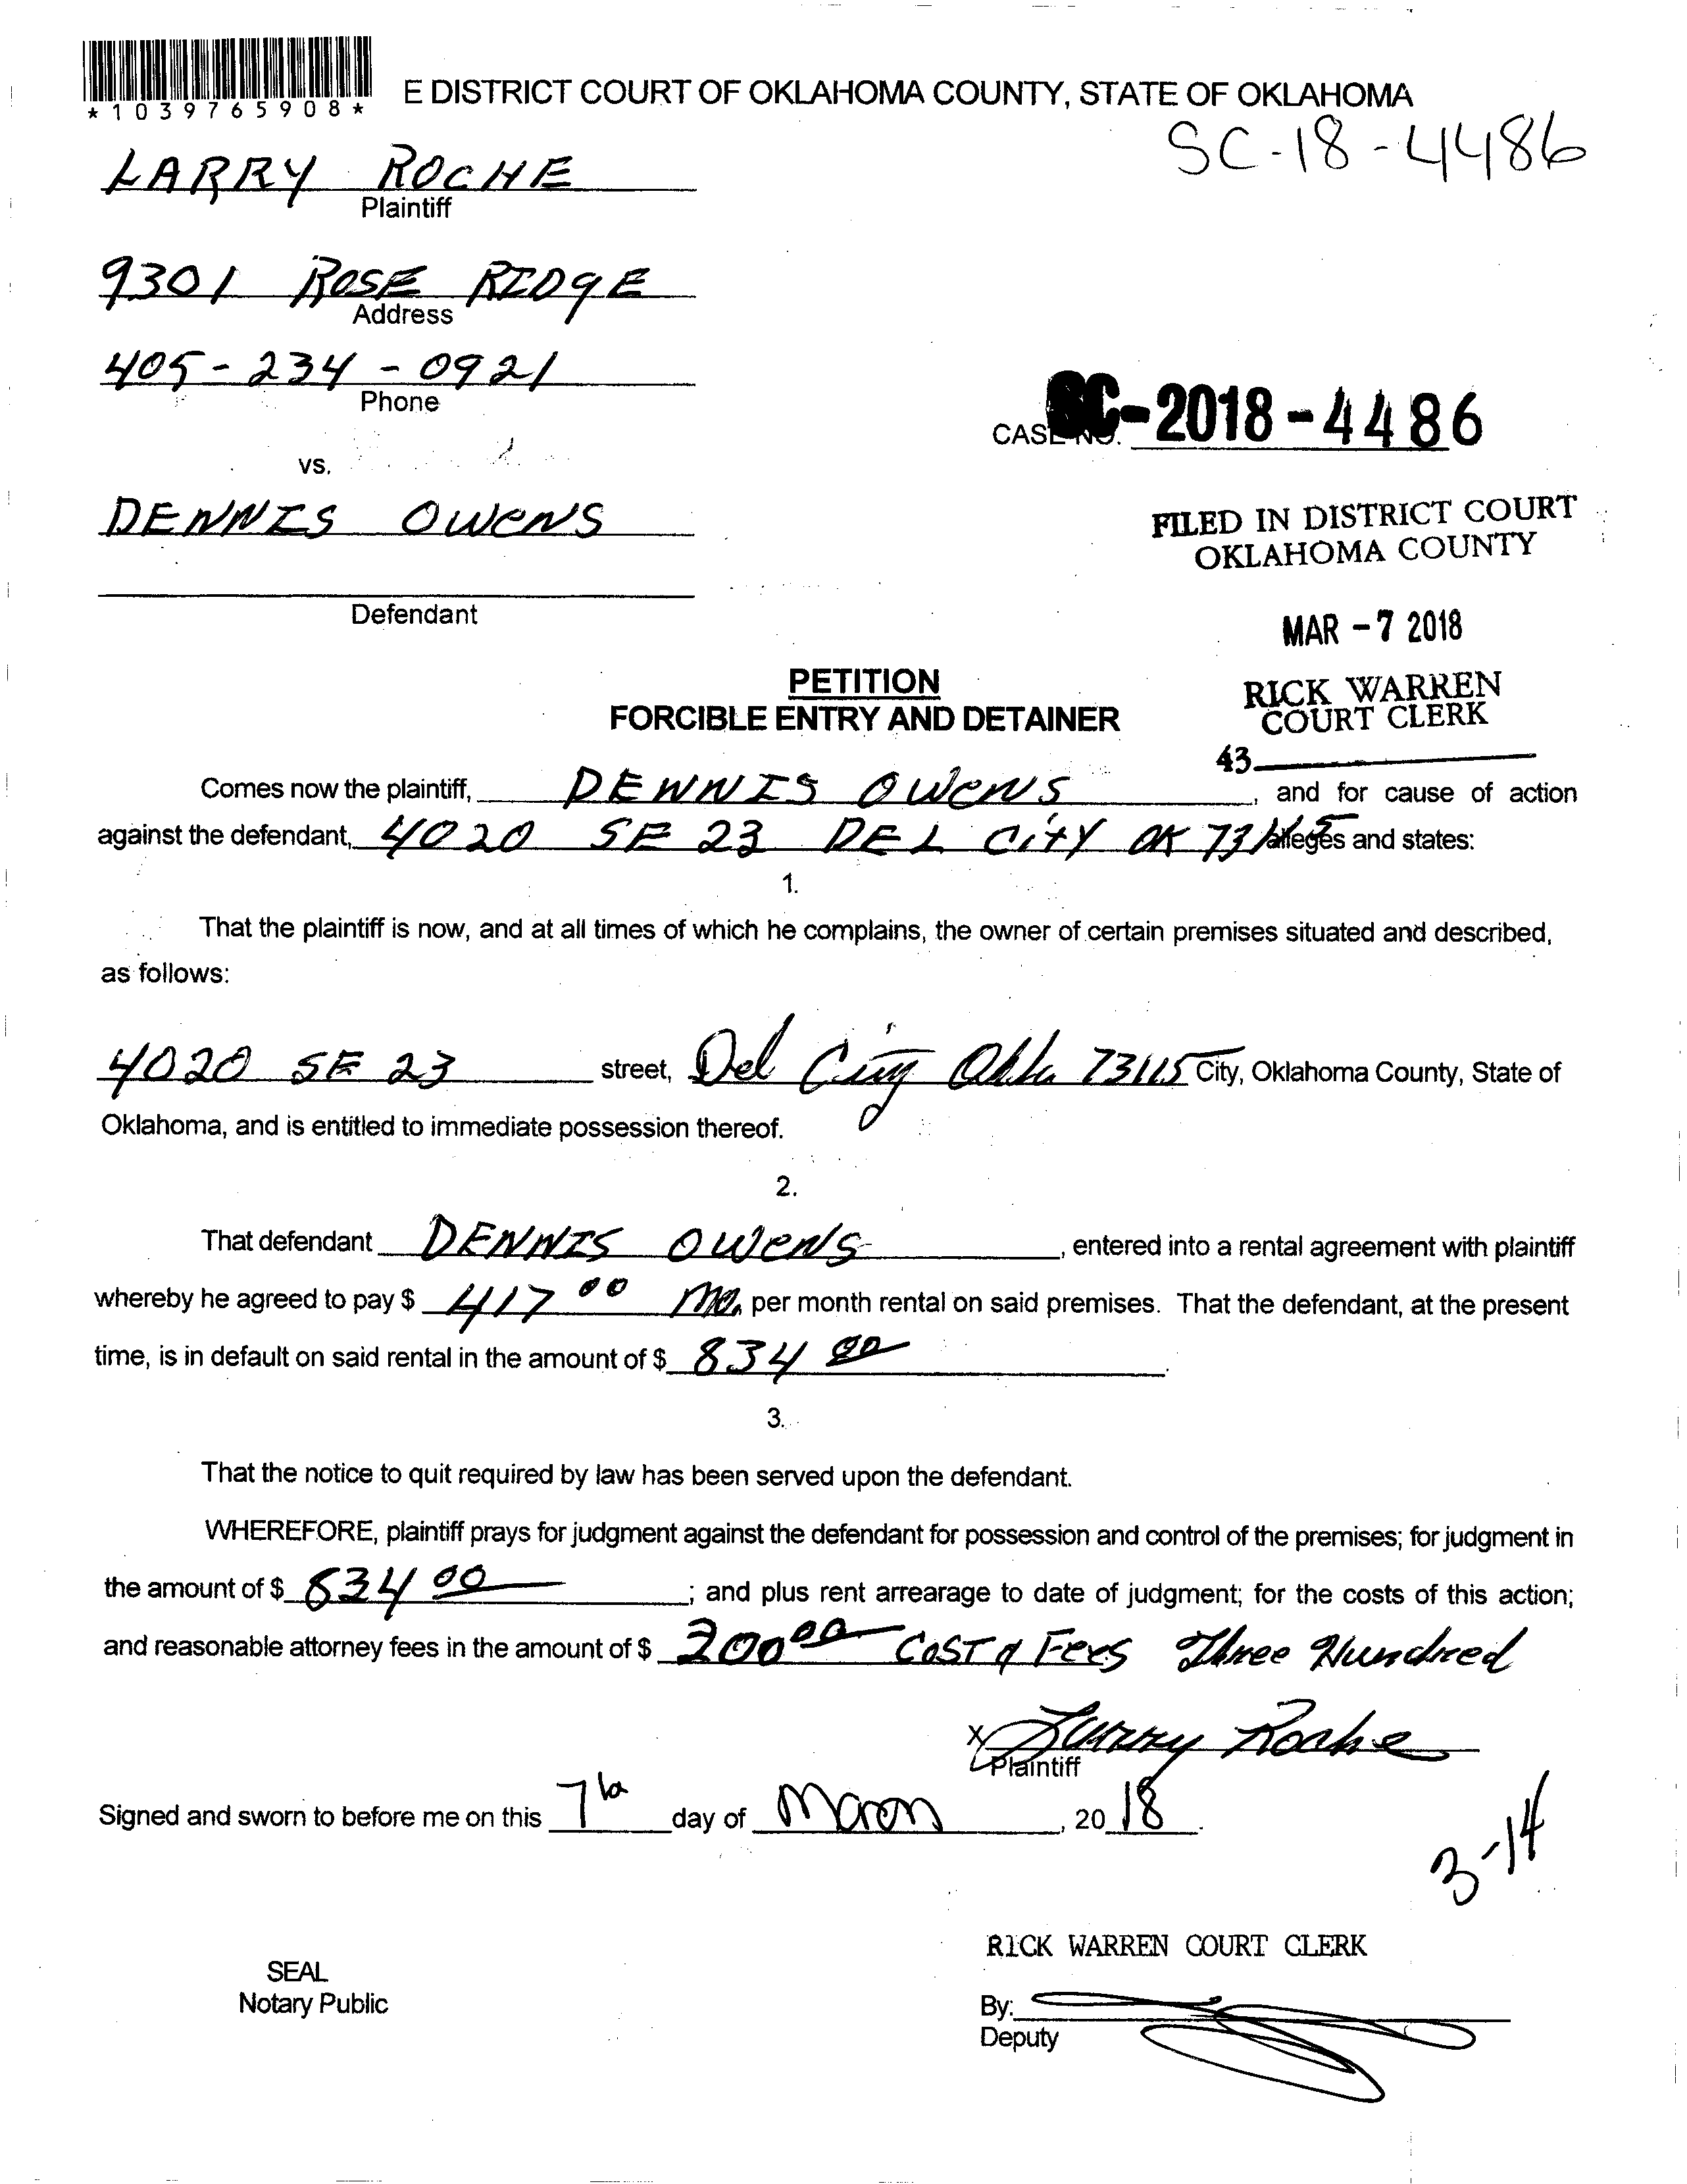 *1039765908*
E DISTRICT COURT OF OKLAHOMA COUNTY, STATE OF OKLAHOMA
SC-18-4486
LARRY ROCHE
Plaintiff
9301 ROSE RIDGE
Address
405-234-0921
Phone
CASE NO. SC-2018-4486
vs.
DENNIS OWENS
FILED IN DISTRICT COURT
OKLAHOMA COUNTY
Defendant
MAR -7 2018
PETITION
FORCIBLE ENTRY AND DETAINER
RICK WARREN
COURT CLERK
43
Comes now the plaintiff, DENNIS OWENS, and for cause of action
against the defendant, 4020 SE 23 DEL CITY OK 73115 alleges and states:
1.
That the plaintiff is now, and at all times of which he complains, the owner of certain premises situated and described,
as follows:
4020 SE 23 street, Del City Okla 73115 City, Oklahoma County, State of
Oklahoma, and is entitled to immediate possession thereof.
2.
That defendant DENNIS OWENS, entered into a rental agreement with plaintiff
whereby he agreed to pay $ 417 00 Mo. per month rental on said premises. That the defendant, at the present
time, is in default on said rental in the amount of $ 834 00.
3.
That the notice to quit required by law has been served upon the defendant.
WHEREFORE, plaintiff prays for judgment against the defendant for possession and control of the premises; for judgment in
the amount of $ 834 00; and plus rent arrearage to date of judgment; for the costs of this action;
and reasonable attorney fees in the amount of $ 300 00 COST & Fees Three Hundred
X Larry Roche
Plaintiff
Signed and sworn to before me on this 7th day of March, 20 18.
3-14
RICK WARREN COURT CLERK
SEAL
Notary Public
By:
Deputy